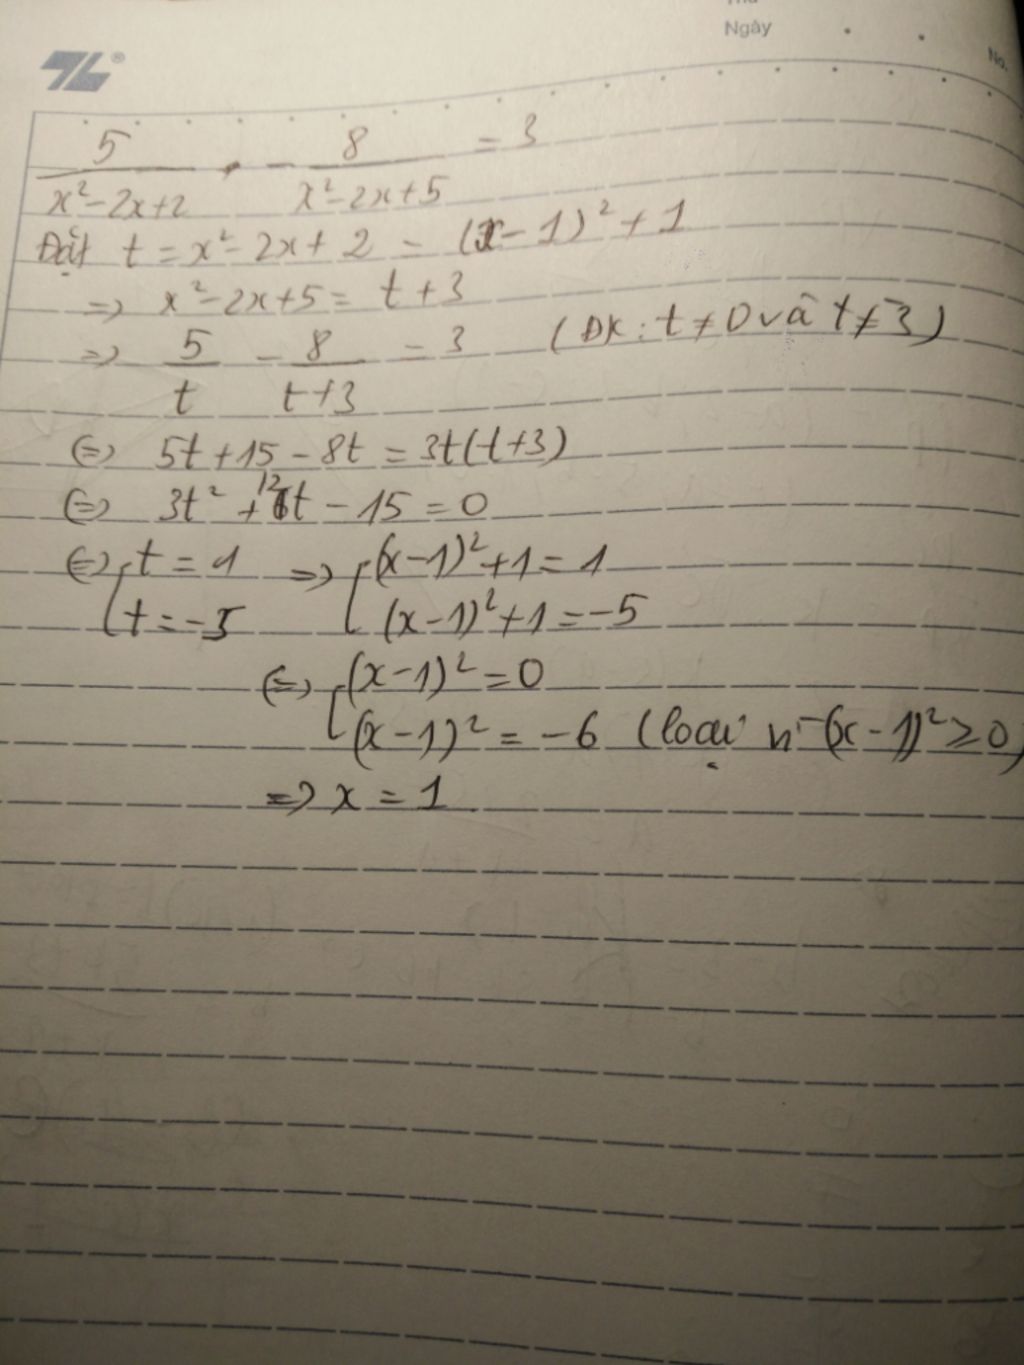 Thứ
Ngày
No.
TL®
5/(x²-2x+2) - 8/(x²-2x+5) = 3
Đặt t = x²-2x+2 = (x-1)²+1
=> x²-2x+5 = t+3
=> 5/t - 8/(t+3) = 3 (ĐK: t≠0 và t≠-3)
(=) 5t+15-8t = 3t(t+3)
(=) 3t² + 12t - 15 = 0
(=) [t = 1 => [(x-1)²+1 = 1
[t = -5 [(x-1)²+1 = -5
(=) [(x-1)² = 0
[(x-1)² = -6 (loại vì (x-1)² ≥ 0)
=> x = 1